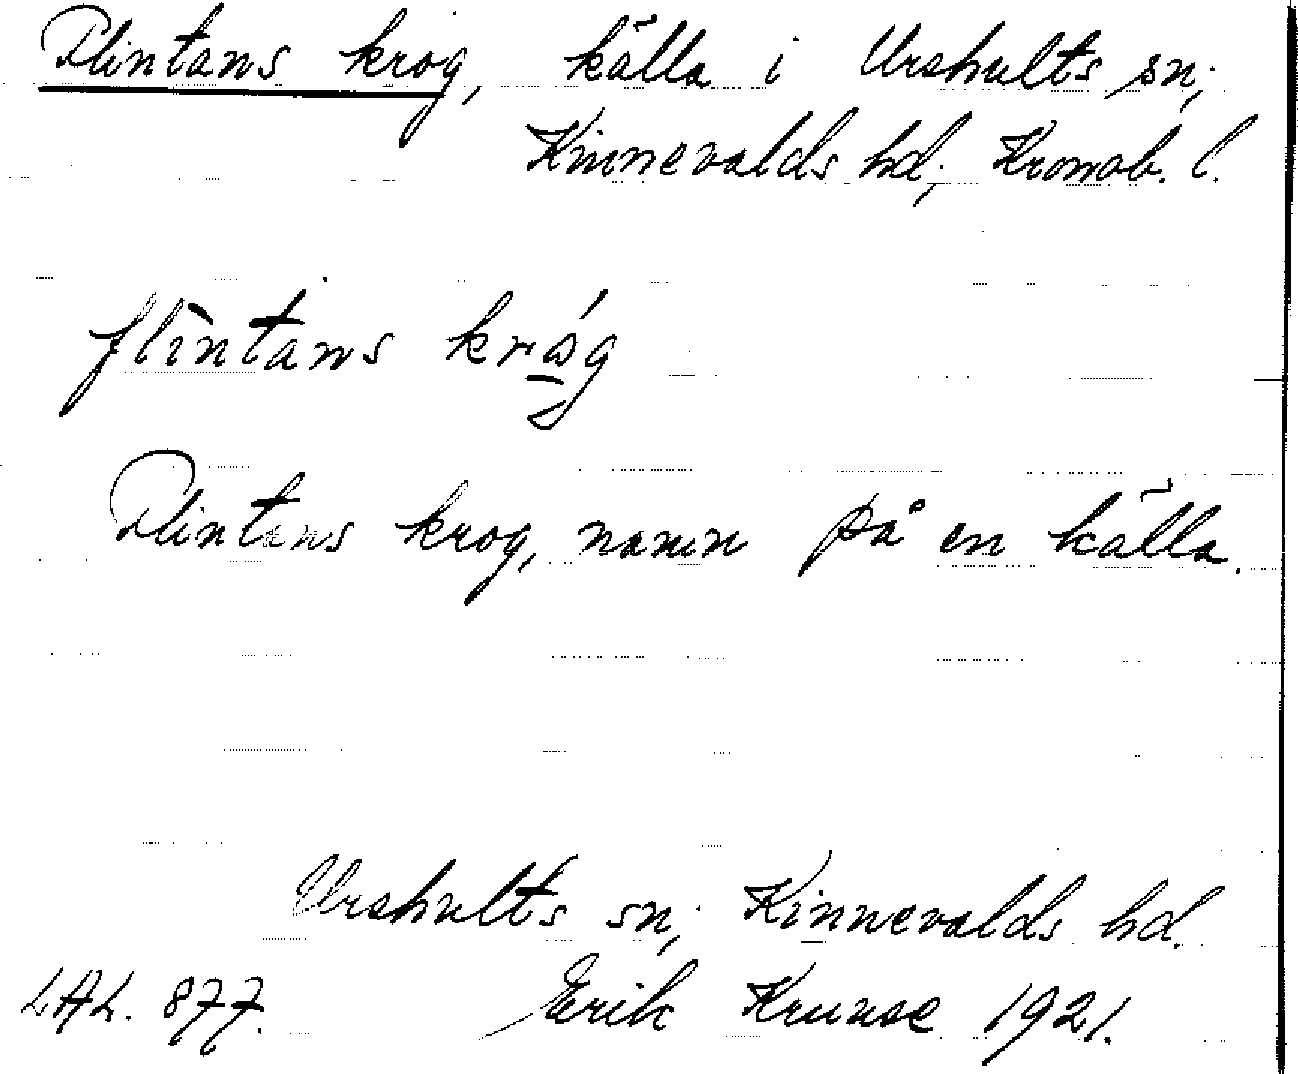 Flintans krog, källa i Urshults sn;
Kinnevalds hd; Kronob. l.
flintans krog
Flintans krog, namn på en källa.
Urshults sn; Kinnevalds hd.
LAL. 877. Erik Kruuse 1921.